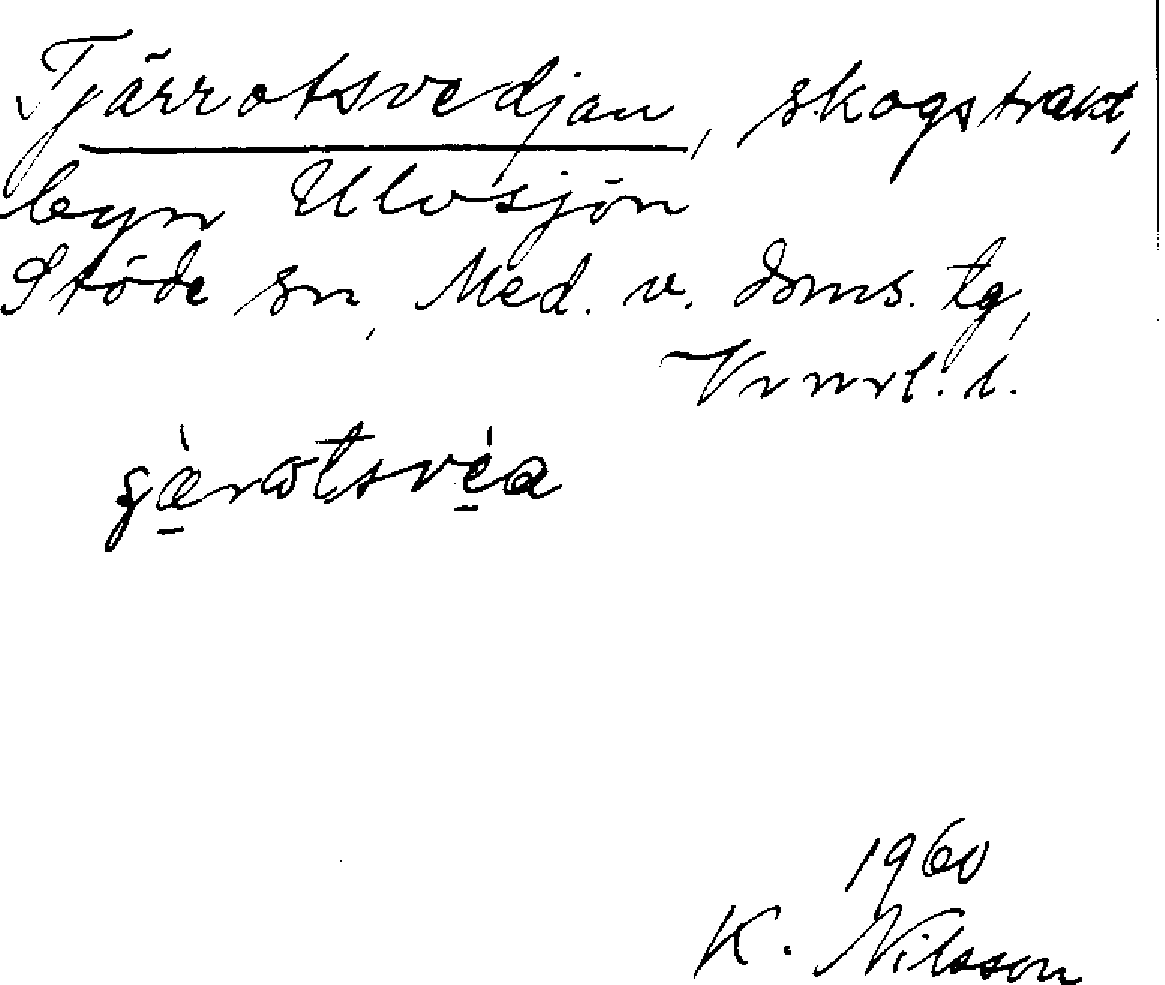 Tjärrotsvedjan, skogstrakt,
byn Ulvsjön
Stöde sn, Med. v. doms. tg,
Vrnrl. l.
1960
K. Nilsson